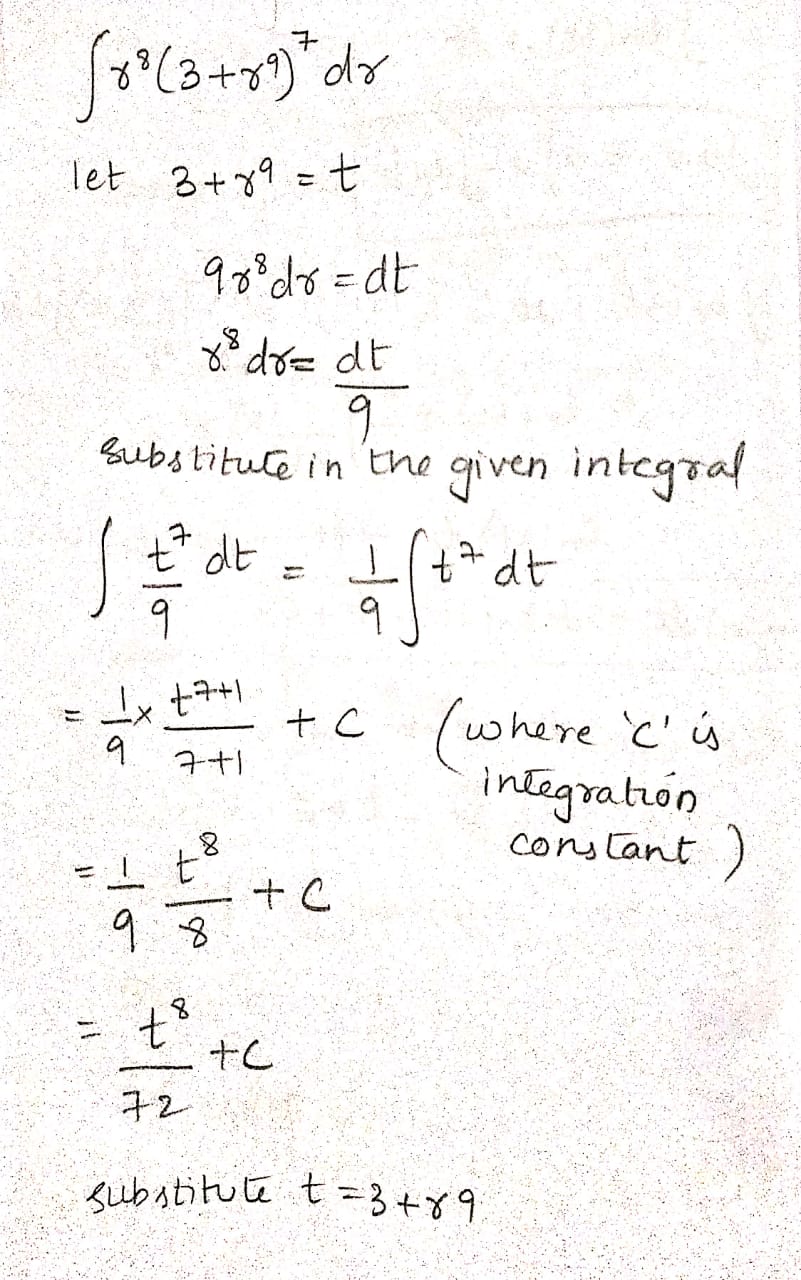 ∫r⁸(3+r⁹)⁷dr
let 3+r⁹=t
9r⁸dr=dt
r⁸dr=dt/9
substitute in the given integral
∫t⁷/9 dt = 1/9∫t⁷dt
=1/9×t⁷⁺¹/7+1 +c (where 'c' is
integration
constant)
=1/9 t⁸/8 +c
=t⁸/72 +c
substitute t=3+r9